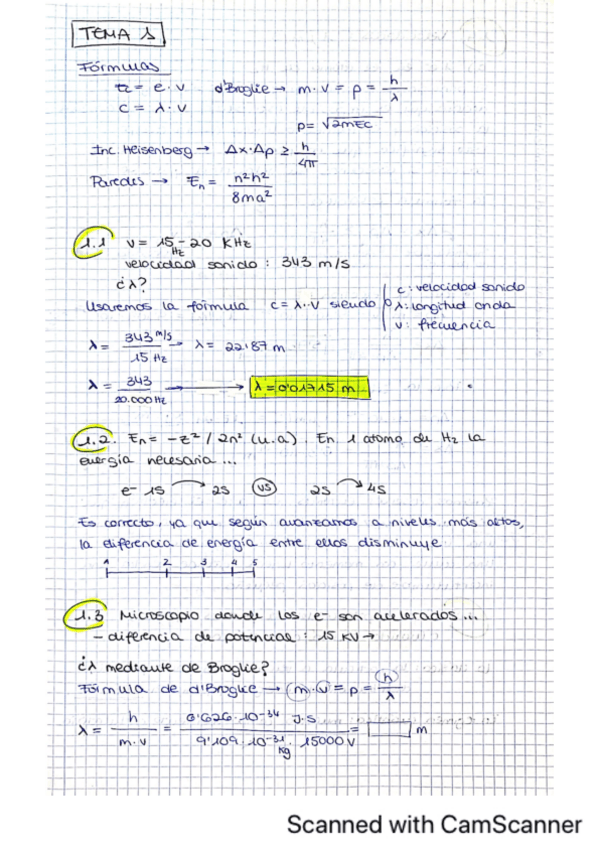 TEMA 1
Fórmulas
E = e · v    d'Broglie → m · v = p = h/λ
c = λ · ν
p = √2mEc
Inc. Heisenberg → Δx · Δp ≥ h/4π
Paredes → En = n²h²/8ma²
1.1 ν = 15 Hz - 20 KHz
velocidad sonido : 343 m/s
¿λ?
Usaremos la fórmula c = λ · ν siendo
c : velocidad sonido
λ : longitud onda
ν : frecuencia
λ = 343 m/s / 15 Hz → λ = 22'87 m
λ = 343 / 20.000 Hz → λ = 0'01715 m
1.2. En = -z² / 2n² (u.a). En 1 átomo de H2 la
energía necesaria ...
e- 1S → 2S (VS) 2S → 4S
Es correcto, ya que según avanzamos a niveles más altos,
la diferencia de energía entre ellos disminuye
1 2 3 4 5
1.3 Microscopio donde los e- son acelerados ...
- diferencia de potencial : 15 KV →
¿λ mediante de Broglie?
Fórmula de d'Broglie → m · v = p = h/λ
λ = h / m · v = 6'626 · 10-34 J·S / 9'109 · 10-31 kg · 15000 V = m
Scanned with CamScanner